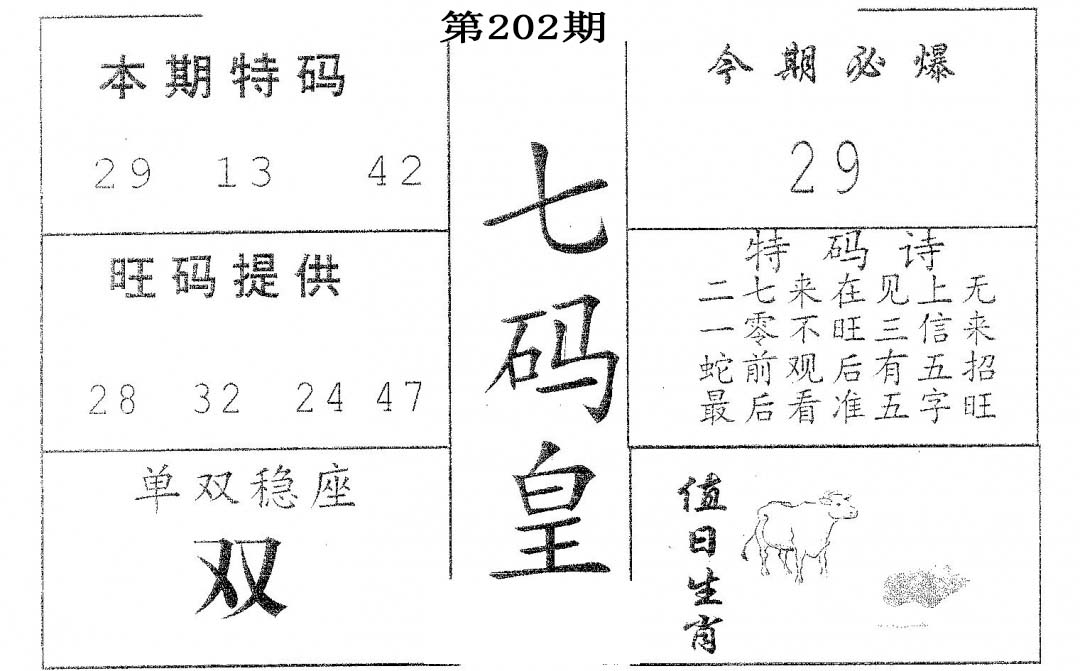 第202期
本期特码
29 13 42
旺码提供
28 32 24 47
单双稳座
双
七码皇
今期必爆
29
特码诗
二七来在见上无
一零不旺三信来
蛇前观后有五招
最后看准五字旺
值日生肖